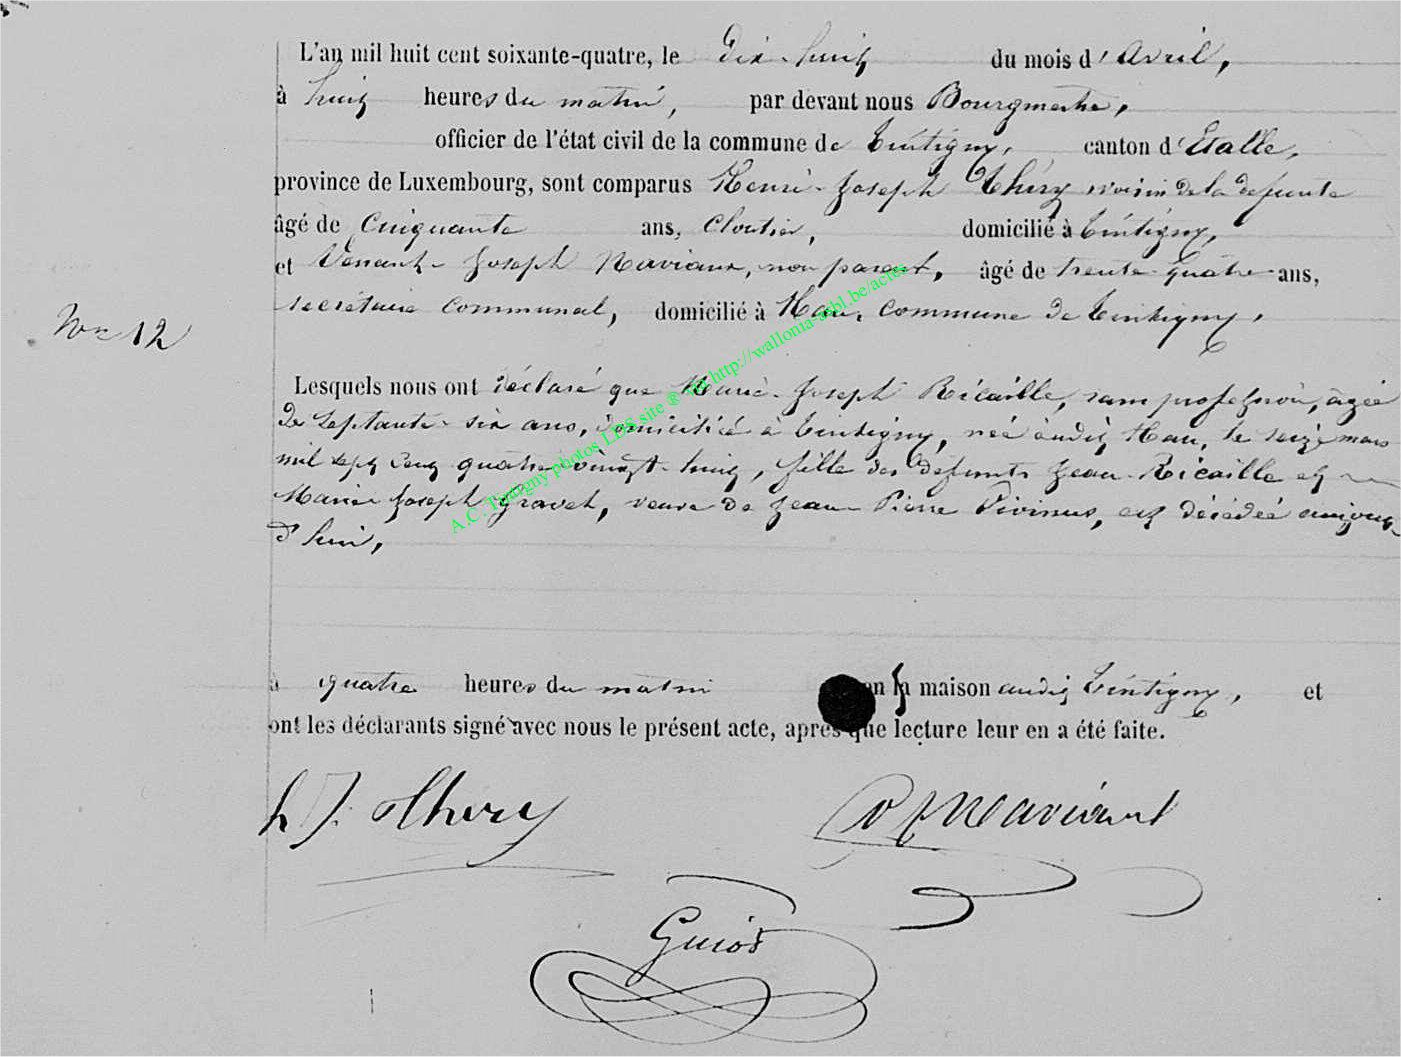 L'an mil huit cent soixante-quatre, le Dix-huit du mois d'Avril,
à huit heures du matin, par devant nous Bourgmestre,
officier de l'état civil de la commune de Tintigny, canton d'Etalle,
province de Luxembourg, sont comparus Henri-Joseph Théry voisin de la défunte
âgé de Cinquante ans, Cloutier, domicilié à Tintigny,
et Venant-Joseph Naviaux, non parent, âgé de trente-quatre ans,
secrétaire communal, domicilié à Han, commune de Tintigny,
No 12
Lesquels nous ont déclaré que Marie-Joseph Ricaille, sans profession, âgée
de Septante-six ans, domiciliée à Tintigny, née audit Han, le seize mars
mil sept cent quatre-vingt-huit, fille des défunts Jean Ricaille et
Marie-Joseph Gravet, veuve de Jean-Pierre Pivinus, est décédée aujour-
d'hui,
à quatre heures du matin en la maison audit Tintigny, et
ont les déclarants signé avec nous le présent acte, après que lecture leur en a été faite.
h J. Thery
V J Naviaux
Guiot
A.C. Tintigny photos LDS site ® http://wallonia-asbl.be/actes